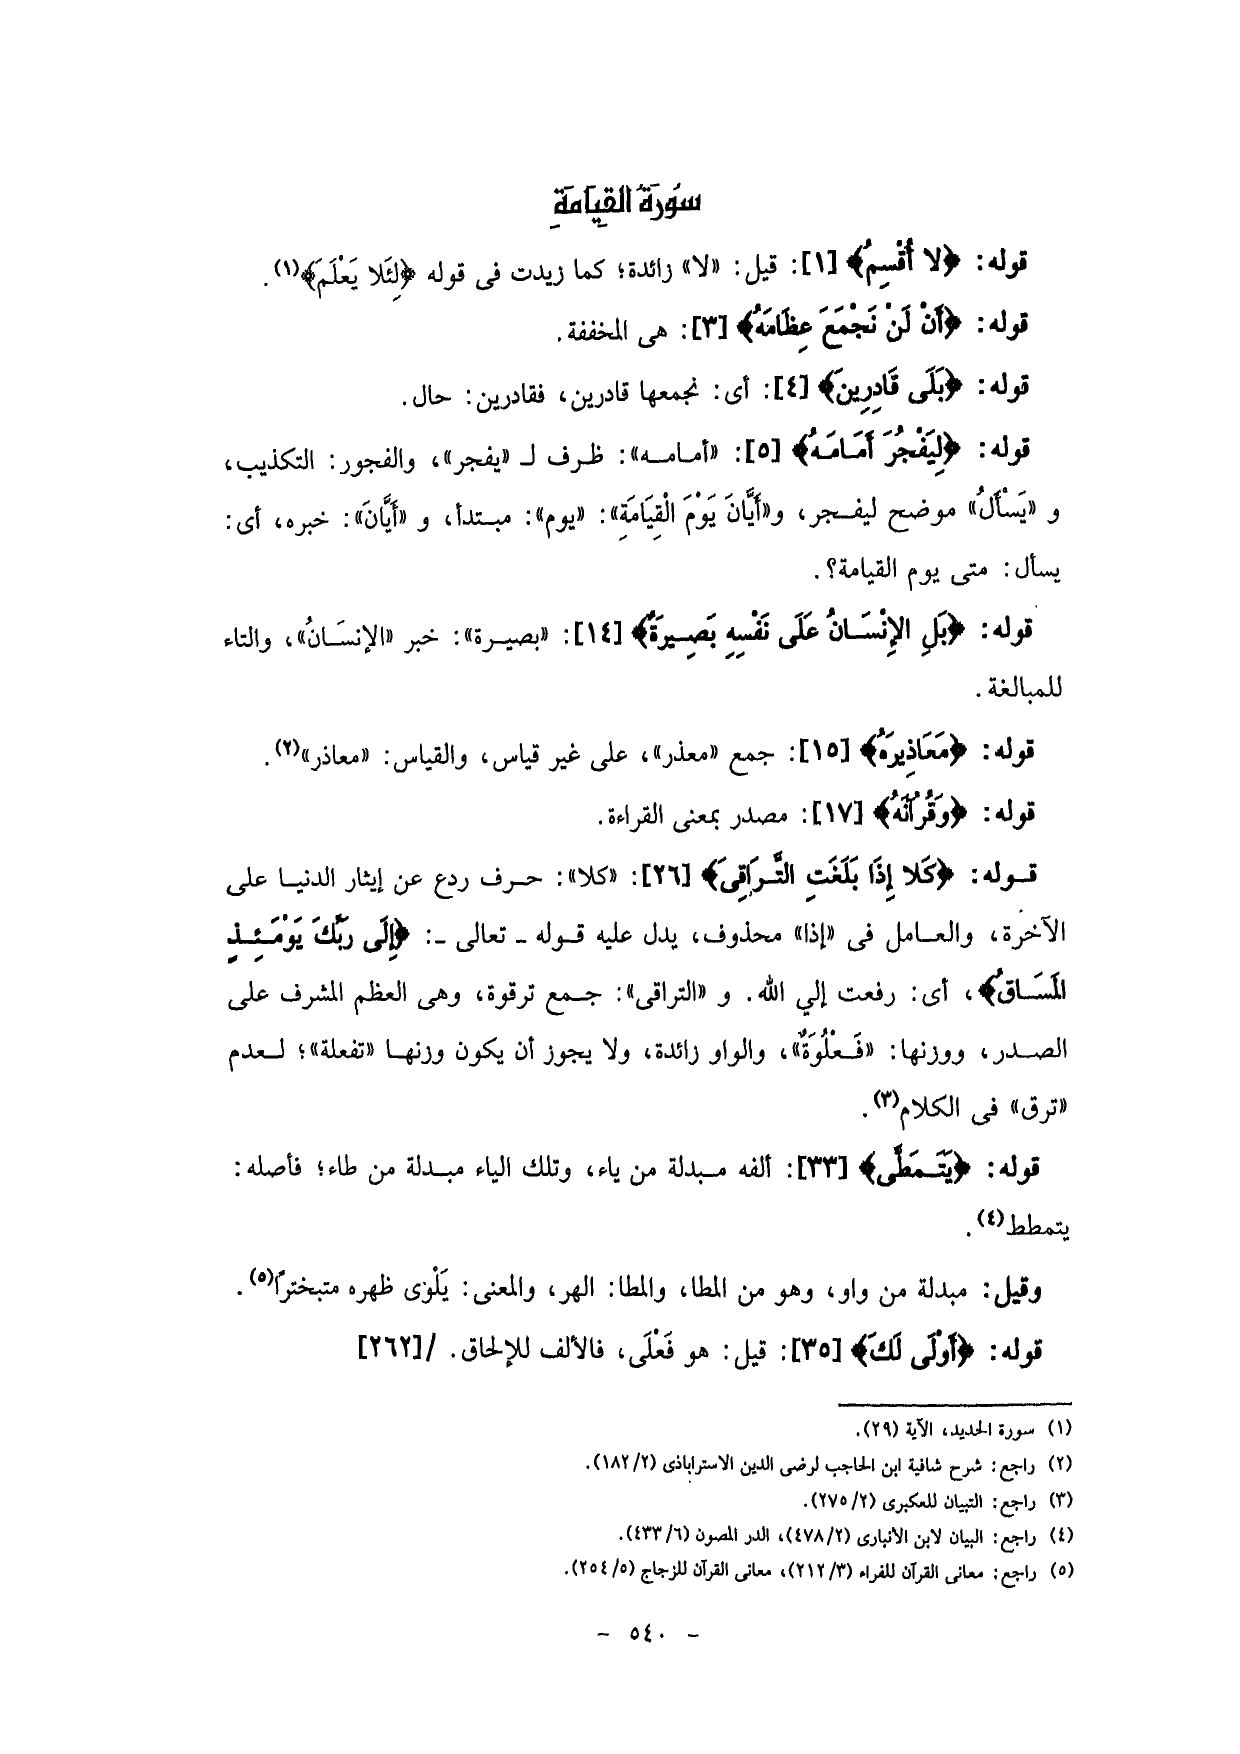 سُورَةُ القِيَامَةِ
قوله: ﴿لا أُقْسِمُ﴾ [١]: قيل: «لا» زائدة؛ كما زيدت فى قوله ﴿لِئَلا يَعْلَمَ﴾(١).
قوله: ﴿أَنْ لَنْ نَجْمَعَ عِظَامَهُ﴾ [٣]: هى المخففة.
قوله: ﴿بَلَى قَادِرِينَ﴾ [٤]: أى: نجمعها قادرين، فقادرين: حال.
قوله: ﴿لِيَفْجُرَ أَمَامَهُ﴾ [٥]: «أمامه»: ظرف لـ «يفجر»، والفجور: التكذيب،
و «يَسْأَلُ» موضح ليفجر، و«أَيَّانَ يَوْمَ الْقِيَامَةِ»: «يوم»: مبتدأ، و «أَيَّانَ»: خبره، أى:
يسأل: متى يوم القيامة؟.
قوله: ﴿بَلِ الإِنْسَانُ عَلَى نَفْسِهِ بَصِيرَةٌ﴾ [١٤]: «بصيرة»: خبر «الإنسَانُ»، والتاء
للمبالغة.
قوله: ﴿مَعَاذِيرَهُ﴾ [١٥]: جمع «معذر»، على غير قياس، والقياس: «معاذر»(٢).
قوله: ﴿وَقُرْآنَهُ﴾ [١٧]: مصدر بمعنى القراءة.
قوله: ﴿كَلا إِذَا بَلَغَتِ التَّرَاقِىَ﴾ [٢٦]: «كلا»: حرف ردع عن إيثار الدنيا على
الآخرة، والعامل فى «إذا» محذوف، يدل عليه قوله ـ تعالى ـ: ﴿إِلَى رَبِّكَ يَوْمَئِذٍ
الْمَسَاقُ﴾، أى: رفعت إلي الله. و «التراقى»: جمع ترقوة، وهى العظم المشرف على
الصدر، ووزنها: «فَعْلُوَةٌ»، والواو زائدة، ولا يجوز أن يكون وزنها «تفعلة»؛ لعدم
«ترق» فى الكلام(٣).
قوله: ﴿يَتَمَطَّى﴾ [٣٣]: ألفه مبدلة من ياء، وتلك الياء مبدلة من طاء؛ فأصله:
يتمطط(٤).
وقيل: مبدلة من واو، وهو من المطا، والمطا: الهر، والمعنى: يَلْوَى ظهره متبخترًا(٥).
قوله: ﴿أَوْلَى لَكَ﴾ [٣٥]: قيل: هو فَعْلَى، فالألف للإلحاق. /[٢٦٢]
(١) سورة الحديد، الآية (٢٩).
(٢) راجع: شرح شافية ابن الحاجب لرضى الدين الاستراباذى (١٨٢/٢).
(٣) راجع: التبيان للعكبرى (٢٧٥/٢).
(٤) راجع: البيان لابن الأنبارى (٤٧٨/٢)، الدر المصون (٤٣٣/٦).
(٥) راجع: معانى القرآن للفراء (٢١٢/٣)، معانى القرآن للزجاج (٢٥٤/٥).
– ٥٤٠ –